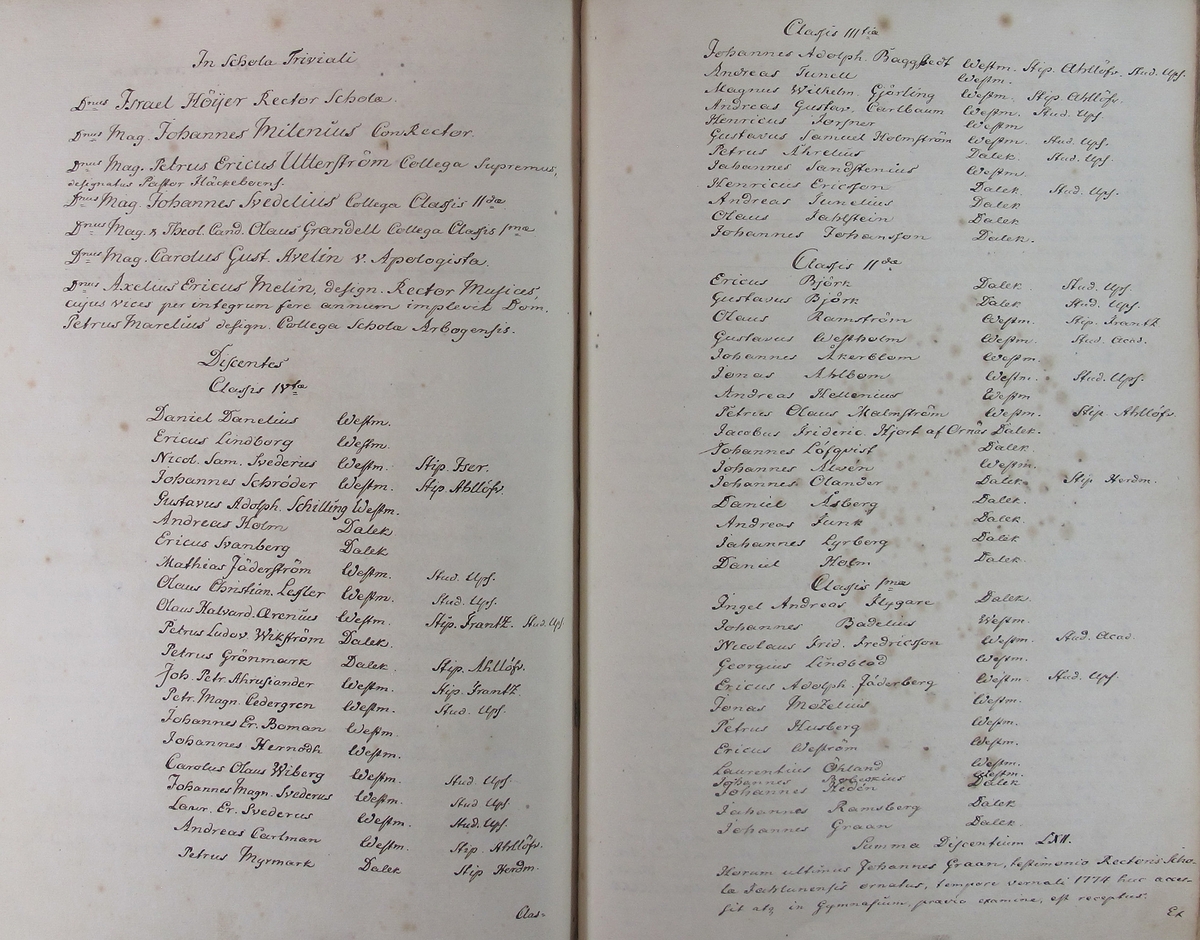 In Schola Triviali
Dnus Israel Höijer Rector Scholæ.
Dnus Mag. Johannes Milenius ConRector.
Dnus Mag. Petrus Ericus Utterström Collega Supremus,
designatus Pastor Fläckeboens.
Dnus Mag. Johannes Svedelius Collega Classis IIdæ
Dnus Mag. & Theol. Cand. Olaus Grandell Collega Classis Imæ
Dnus Mag. Carolus Gust. Avelin v. Apologista.
Dnus Axelius Ericus Melin, design. Rector Musices,
cujus vices per integrum fere annum implevit Dom.
Petrus Marelius design. Collega Scholæ Arbogensis.
Discentes
Classis IVtæ
Daniel Danelius Westm.
Ericus Lindborg Westm.
Nicol. Sam. Svederius Westm. Stip. Iser.
Johannes Schröder Westm. Stip. Ahllöfv.
Gustavus Adolph. Schilling Westm.
Andreas Holm Dalek
Ericus Svanberg Dalek
Mathias Jäderström Westm. Stud. Ups.
Olaus Christian. Lessler Westm. Stud. Ups.
Olaus Halvard. Ærenius Westm. Stip. Frantz. Stud. Ups
Petrus Ludov. Wikström Dalek.
Petrus Grönmark Dalek Stip. Ahllöfv.
Joh. Petr. Ahrusiander Westm. Stip. Frantz.
Petr. Magn. Cedergren Westm. Stud. Ups.
Johannes Er. Boman Westm.
Johannes Hernodh Westm.
Carolus Olaus Wiberg Westm. Stud Ups.
Johannes Magn. Svederus Westm. Stud Ups.
Laur. Er. Svederus Westm. Stud. Ups.
Andreas Carlman Westm. Stip. Ahllöfv.
Petrus Myrmark Dalek Stip Herdm.
Clas-
Classis IIItiæ
Johannes Adolph. Baggstedt Westm. Stip. Ahllöfv. Stud. Ups.
Andreas Tunell Westm.
Magnus Wilhelm. Gjörling Westm. Stip Ahllöfv.
Andreas Gustav. Carlbaum Westm. Stud. Ups.
Henricus Forsner Westm
Gustavus Samuel Holmström Westm. Stud. Ups.
Petrus Ahrelius Dalek. Stud. Ups.
Johannes Sandstenius Westm.
Henricus Ericsson Dalek Stud. Ups.
Andreas Junelius Dalek
Olaus Fahlstein Dalek
Johannes Johansson Dalek.
Classis IIdæ
Ericus Björk Dalek Stud. Ups.
Gustavus Björk Dalek Stud. Ups.
Olaus Ramström Westm. Stip. Frantz
Gustavus Westholm Westm. Stud. Acad.
Johannes Åkerblom Westm.
Jonas Ahlbom Westm. Stud. Ups.
Andreas Hellenius Westm
Petrus Olaus Malmström Westm. Stip Ahllöfv.
Jacobus Frideric. Hjort af Ornäs Dalek.
Johannes Löfqvist Dalek
Johannes Alvén Westm.
Johannes Olander Dalek Stip Herdm.
Daniel Åsberg Dalek
Andreas Funk Dalek
Johannes Lyrberg Dalek
Daniel Holm Dalek
Classis Imæ
Ingel Andreas Flygare Dalek.
Johannes Badelius Westm.
Nicolaus Frid. Fredricsson Westm. Stud. Acad.
Georgius Lindblad Westm.
Ericus Adolph. Jäderberg Westm. Stud. Ups.
Jonas Mozelius Westm.
Petrus Husberg Westm.
Ericus Weström Westm.
Laurentius Öhland Westm.
Johannes Westm.
Johannes Hedén Dalek
Johannes Ramsberg Dalek
Johannes Graan Dalek.
Summa Discentium LXII.
Horum ultimus Johannes Graan, testimonio Rectoris Scho-
læ Fahlunensis ornatus, tempore vernali 1774 huc acces-
sit atq. in Gymnasium, prævio examine, est receptus.
Ex